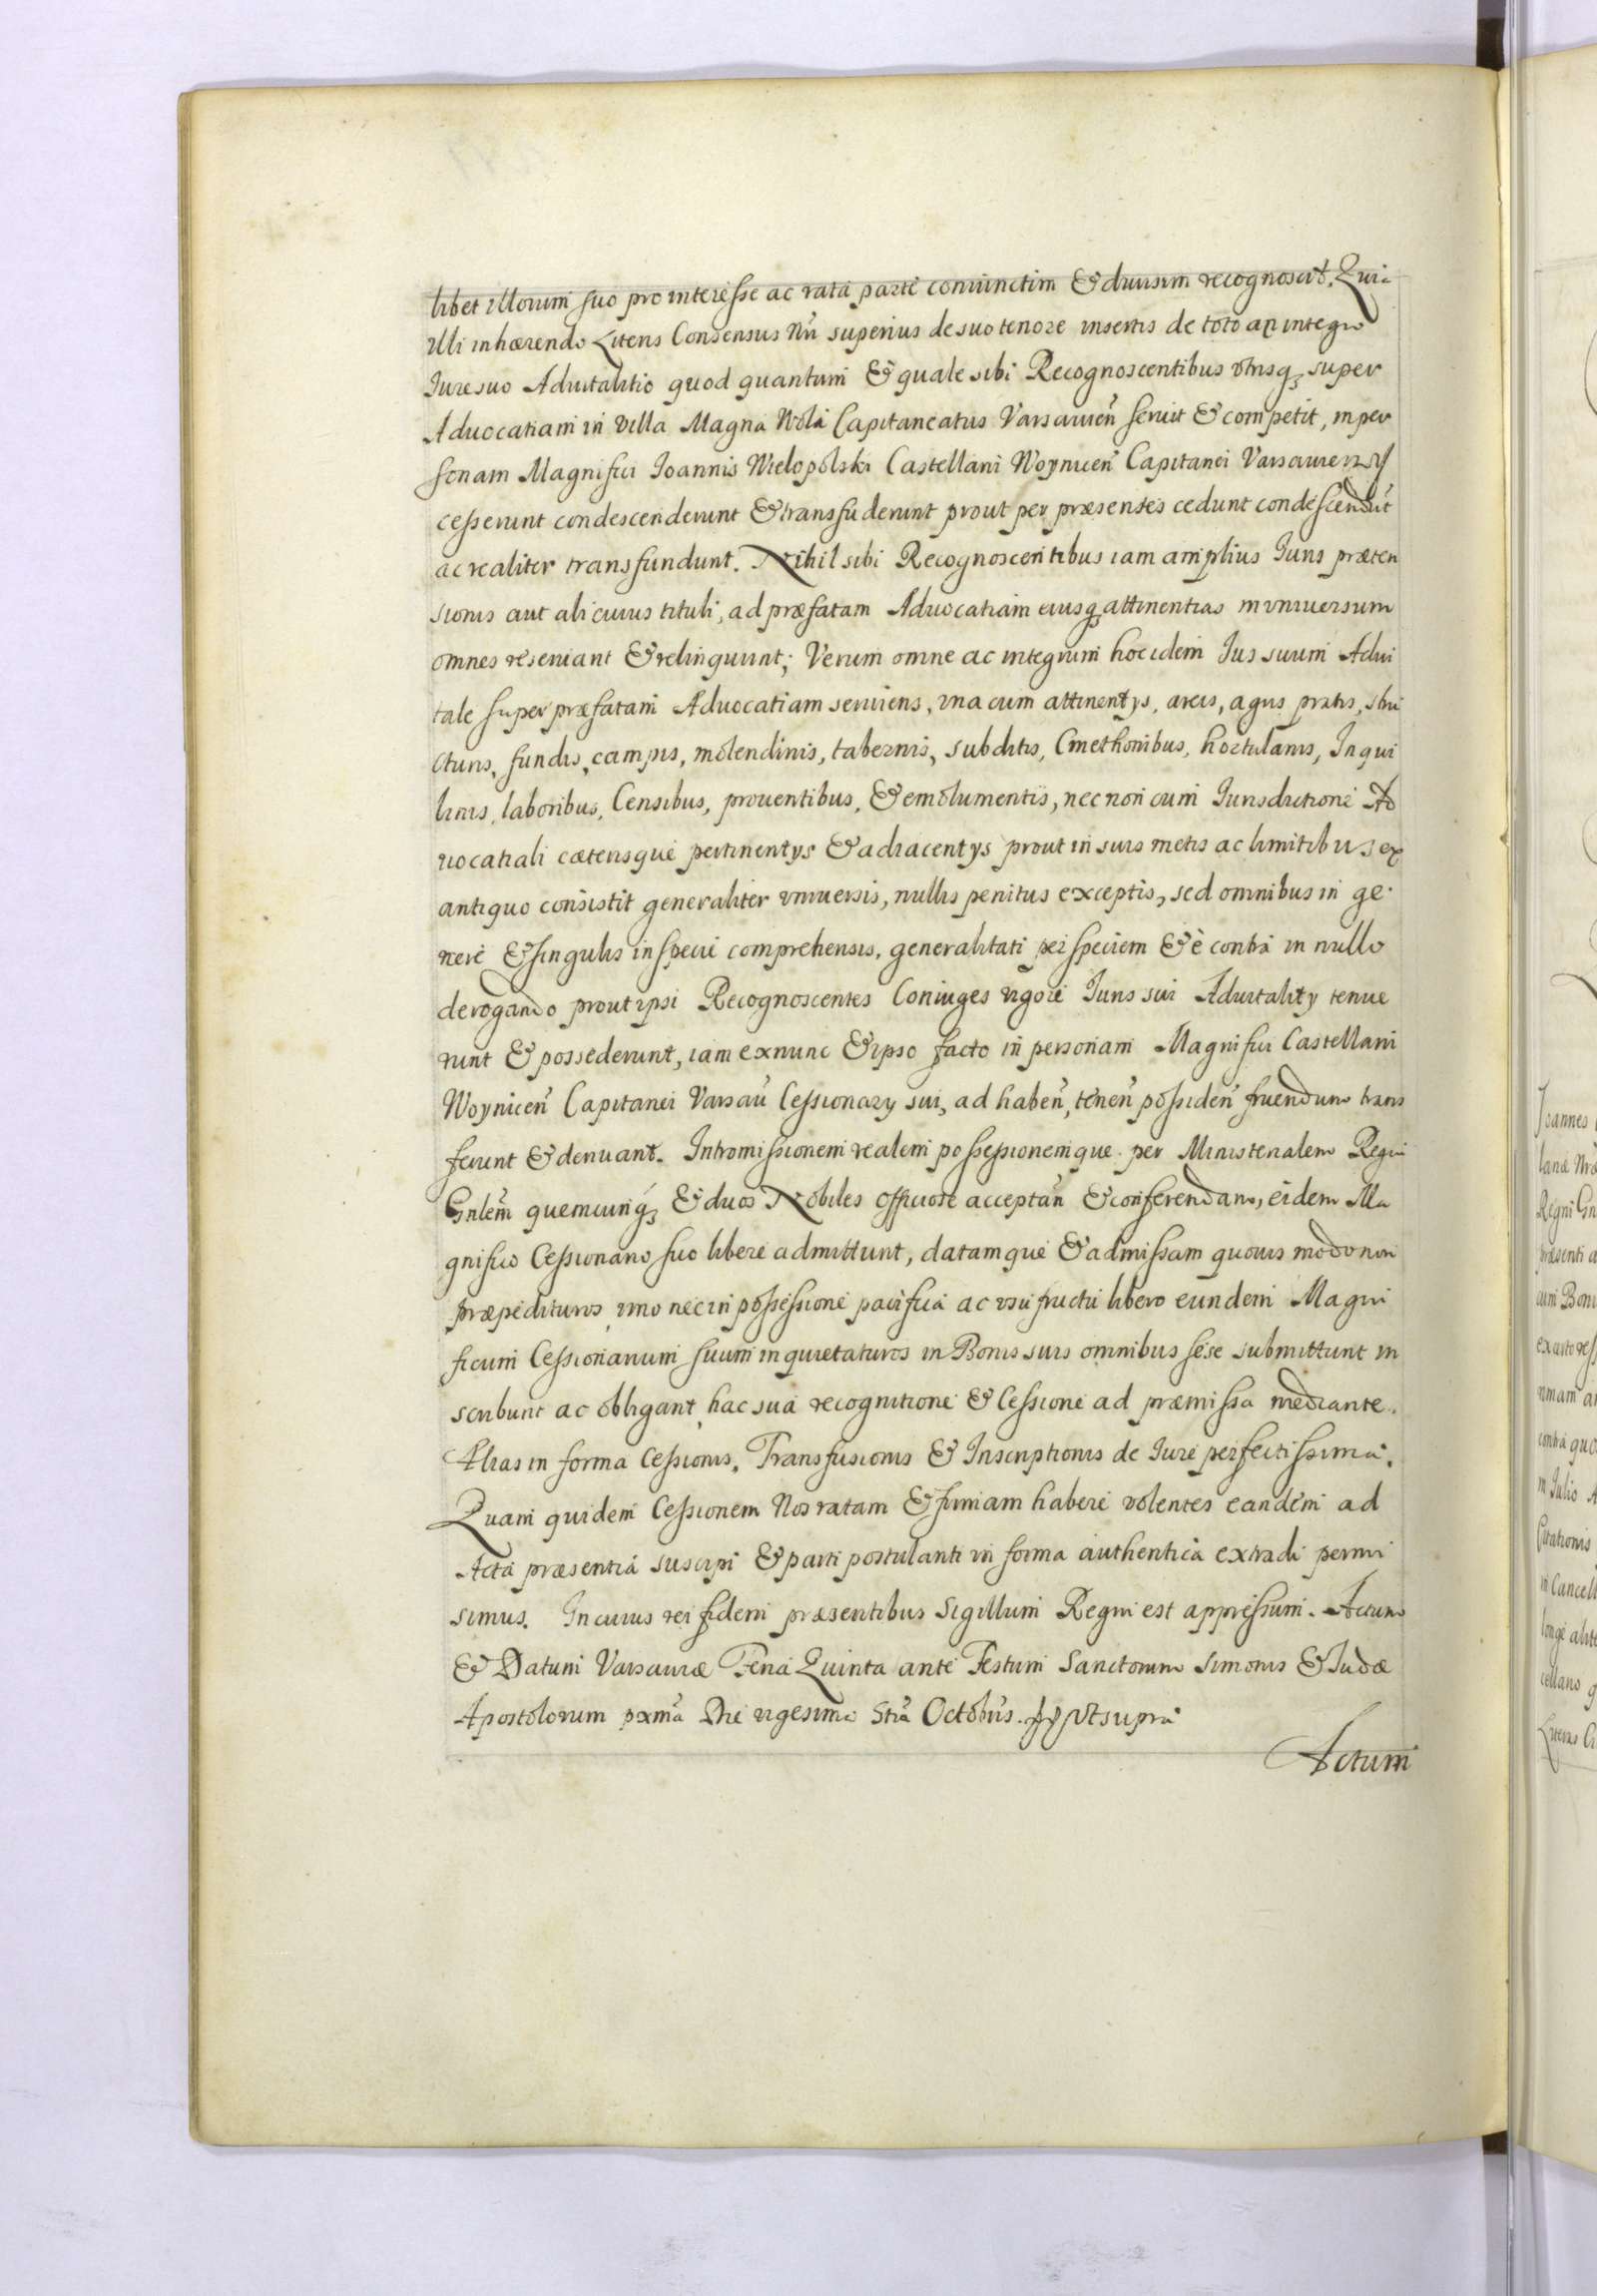 libet illorum suo pro interesse ac rata parte coniunctim & diuisim recognoscit. Quia
Illi inhærendo Literis Consensus Nri superius de suo tenore insertis de toto ac integro
Iure suo Aduitalitio quod quantum & quale sibi Recognoscentibus vtrisq super
Aduocatiam in villa Magna Wola Capitaneatus Varsauien seruit & competit, in per
sonam Magnifici Ioannis Wielopolski Castellani Woynicen Capitanei Varsauiensis
cesserunt condescenderunt & transfuderunt prout per præsentes cedunt condescendut
ac realiter transfundunt. Nihil sibi Recognoscentibus iam amplius Iuris præten
sionis aut alicuius tituli, ad præfatam Aduocatiam eiusq attinentias in vniuersum
omnes reseruant & relinquunt; Verum omne ac integrum hoc idem Ius suum Adui
tale super præfatam Aduocatiam seruiens, vna cum attinentys, areis, agris pratis, stru
cturis, fundis, campis, molendinis, tabernis, subditis, Cmethonibus, hortulanis, Inqui
linis, laboribus, Censibus, prouentibus, & emolumentis, nec non cum Iurisdictione Ad
uocatiali cæterisque pertinentys & adiacentys prout in suis metis ac limitibus ex
antiquo consistit generaliter vniuersis, nullis penitus exceptis, sed omnibus in ge
nere & singulis in specie comprehensis, generalitati per speciem & è contra in nullo
derogando prout ipsi Recognoscentes Coniuges vigore Iuris sui Aduitality tenue
runt & possederunt, iam ex nunc & ipso facto in personam Magnifici Castellani
Woynicen Capitanei Varsau Cessionary sui, ad haben, tenen possiden fruendum trans
ferunt & deriuant. Intromissionem realem possessionemque per Ministerialem Regni
Gnlem quemcunq & duos Nobiles officiose acceptan & conferendam, eidem Ma
gnifico Cessionario suo libere admittunt, datamque & admissam quouis modo non
præpedituros, imo nec in possessione pacifica ac vsufructu libero eundem Magni
ficum Cessionarium suum inquietaturos in Bonis suis omnibus sese submittunt in
scribunt ac obligant, hac sua recognitione & Cessione ad præmissa mediante.
Alias in forma Cessionis, Transfusionis & Inscriptionis de Iure perfectissima.
Quam quidem Cessionem Nos ratam & firmam habere volentes eandem ad
Acta præsentia suscipi & parti postulanti in forma authentica extradi permi
simus. In cuius rei fidem præsentibus Sigillum Regni est appressum. Actum
& Datum Varsauiæ Feria Quinta ante Festum Sanctorum Simonis & Iudæ
Apostolorum pxma Die vigesima Octobris. vt supra
Actum